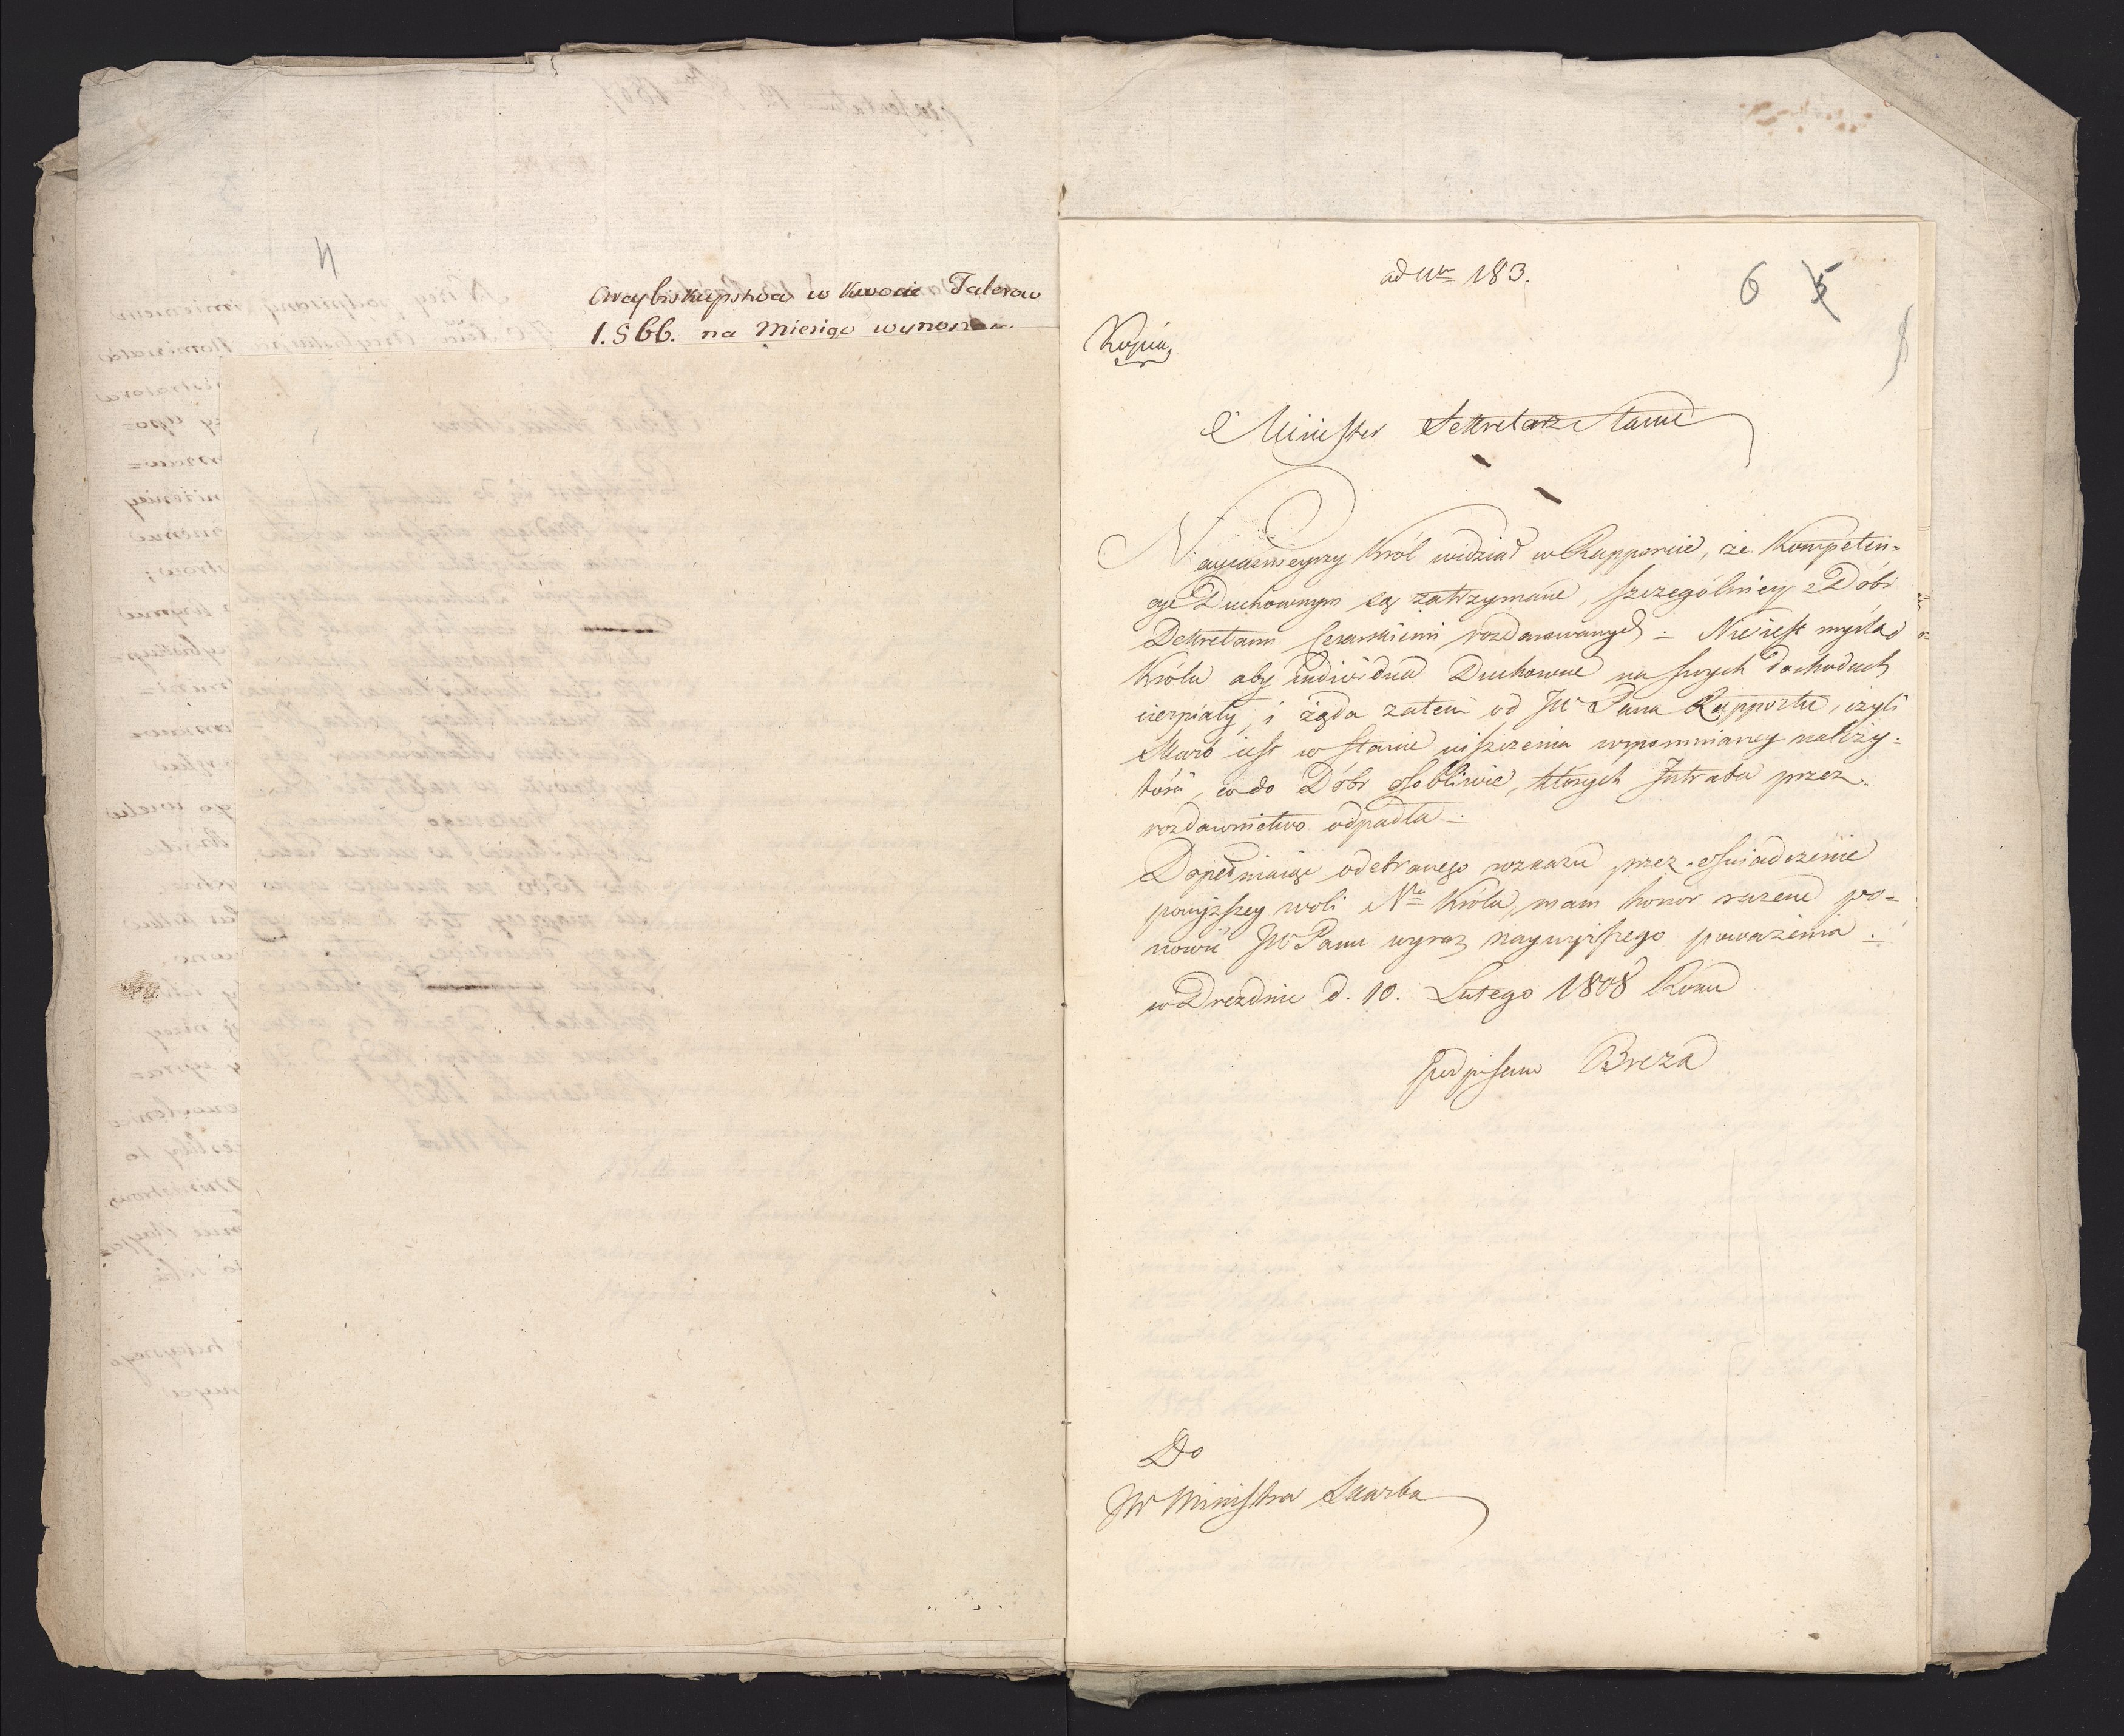 4
Arcybiskupstwa w kwocie Talerow
1.866. na Miesiąc wynosz
ad Nrm 183.
6 5
Kopia
Minister Sekretarz Stanu
Nayiasnieyszy Król widział w Rapporcie, że Kompeten=
cye Duchownym są zatrzymane, szczególniey z Dóbr
Dekretami Cesarskiemi rozdarowanych. Nie iest myślą
Króla aby individua Duchowne na swych dochodach
cierpiały, i żąda zatem od JW Pana Rapportu, czyli
Skarb iest w stanie uiszczenia wspomnianey należy=
tości, co do Dóbr osobliwie, których Intrata przez
rozdawnictwo odpadła.
Dopełniaiąc odebranego rozkazu przez oświadczenie
powyższey woli Nо Króla, mam honor razem po=
nowić JW Panu wyraz naywyższego poważenia.
w Dreznie d. 10. Lutego 1808 Roku
podpisano Breza
Do
JW Ministra Skarbu